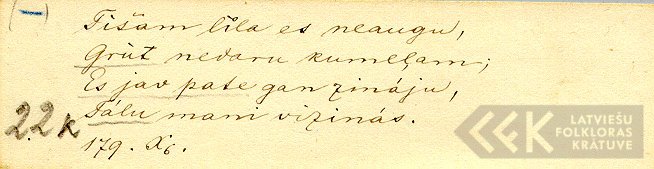 (1)
Tišám lîla es neaugu,
Grût nedaru kumeļam;
Es jav pate gan zináju,
Tálu mani vizinás.
22 k
179. X6.
LATVIEŠU
FOLKLORAS
KRĀTUVE